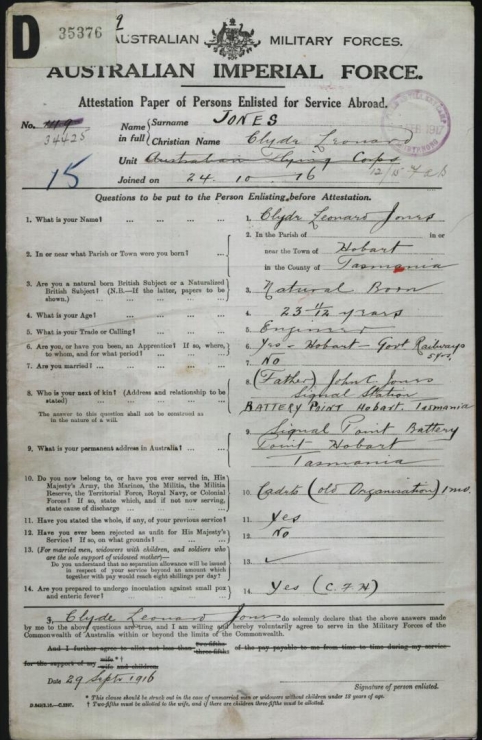 D 35376
AUSTRALIAN MILITARY FORCES.
AUSTRALIAN IMPERIAL FORCE.
Attestation Paper of Persons Enlisted for Service Abroad.
No. 34425
15
Name in full { Surname JONES
Christian Name Clyde Leonard
Unit Australian Flying Corps
Joined on 24. 10. 16
Questions to be put to the Person Enlisting before Attestation.
1. What is your Name? ... ... ... 1. Clyde Leonard Jones
2. In or near what Parish or Town were you born? ... 2. In the Parish of in or
near the Town of Hobart
in the County of Tasmania
3. Are you a natural born British Subject or a Naturalized
British Subject? (N.B.—If the latter, papers to be
shown.) ... ... ... 3. Natural Born
4. What is your Age? ... ... ... 4. 23 11/12 years
5. What is your Trade or Calling? ... ... 5. Engineer
6. Are you, or have you been, an Apprentice? If so, where,
to whom, and for what period? ... ... 6. Yes - Hobart - Govt Railways
5 yrs.
7. Are you married? ... ... ... 7. No
8. Who is your next of kin? (Address and relationship to be
stated) ... ... ...
The answer to this question shall not be construed as
in the nature of a will.
8. (Father) John C Jones
Signal Station
BATTERY POINT Hobart, Tasmania
9. What is your permanent address in Australia? ... 9. Signal Point Battery
Point Hobart
Tasmania
10. Do you now belong to, or have you ever served in, His
Majesty's Army, the Marines, the Militia, the Militia
Reserve, the Territorial Force, Royal Navy, or Colonial
Forces? If so, state which, and if not now serving,
state cause of discharge ... ... 10. Cadets (old Organisation) 1 mo.
11. Have you stated the whole, if any, of your previous service? 11. Yes
12. Have you ever been rejected as unfit for His Majesty's
Service? If so, on what grounds? ... ... 12. No
13. (For married men, widowers with children, and soldiers who
are the sole support of widowed mother)—
Do you understand that no separation allowance will be issued
in respect of your service beyond an amount which
together with pay would reach eight shillings per day?
13.
14. Are you prepared to undergo inoculation against small pox
and enteric fever? ... ... ... 14. Yes
I, Clyde Leonard Jones do solemnly declare that the above answers made
by me to the above questions are true, and I am willing and hereby voluntarily agree to serve in the Military Forces of the
Commonwealth of Australia within or beyond the limits of the Commonwealth.
And I further agree to allot not less than two-fifths three-fifths of the pay payable to me from time to time during my service
for the support of my wife*† wife and children.
Date 29 Sept 1916
Signature of person enlisted.
* This clause should be struck out in the case of unmarried men or widowers without children under 18 years of age.
† Two-fifths must be allotted to the wife, and if there are children three-fifths must be allotted.